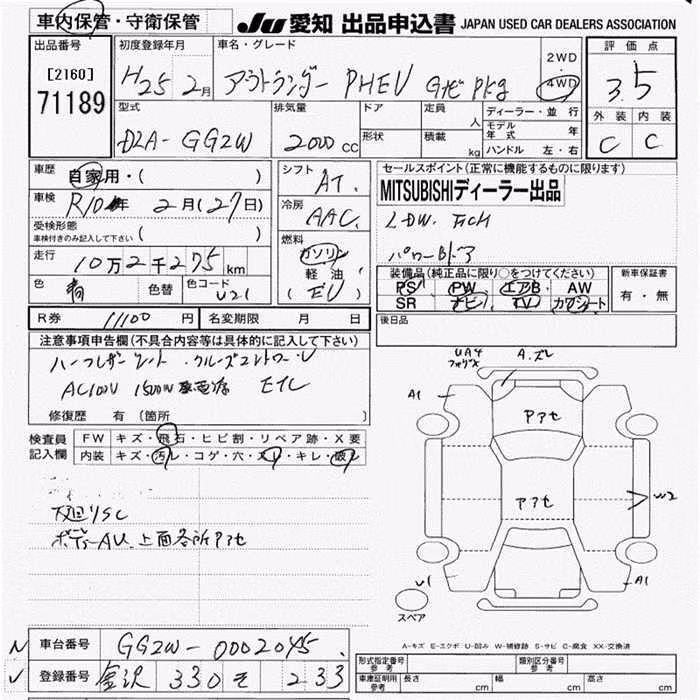 車内保管・守衛保管
JU 愛知 出品申込書 JAPAN USED CAR DEALERS ASSOCIATION
出品番号 初度登録年月 車名・グレード 評価点
[2160]
71189
H25 2月 アウトランダー PHEV Gナビ Pkg 2WD 4WD 3.5
型式 排気量 ドア 定員 人 ディーラー・並行 外装 内装
DLA-GG2W 2000cc 形状 積載 kg モデル年式 年 C C
ハンドル 左・右
車歴 自家用・( )
シフト AT.
セールスポイント(正常に機能するものに限ります)
MITSUBISHIディーラー出品
車検 R10年 2月(27日)
冷房 AAC.
LDW. FCM
受検形態
車検付きのみ記入して下さい ( )
パワーBドア
走行 10万2千275km
燃料 ガソリン
軽油
(EV)
装備品(純正品に限り○をつけてください) 新車保証書
PS PW エアB AW 有・無
SR ナビ TV カワシート
色 色替 色コード U21
R券 11100円 名変期限 月 日
後日品
注意事項申告欄(不具合内容等は具体的に記入して下さい)
ハーフレザーシート・クルーズコントロール
AC100V 1500W 電源 ETC
修復歴 有 〔箇所 〕
検査員記入欄 FW キズ・飛石・ヒビ割・リペア跡・X要
内装 キズ・汚レ・コゲ・穴・スレ・キレ・破レ
下廻りSC
ボデーAU 上面各所アセ
UA4 A.ズレ
フォグX
A1
アアセ
アアセ
W2
U1
A1
スペア
A-キズ E-エクボ U-凹み W-補修跡 S-サビ C-腐食 XX-交換済
車台番号 GG2W-0002045
登録番号 金沢 330 そ 233
形式指定番号 参考 類別区分番号 参考
車庫証明用 参考 長さ cm 幅 cm 高さ cm